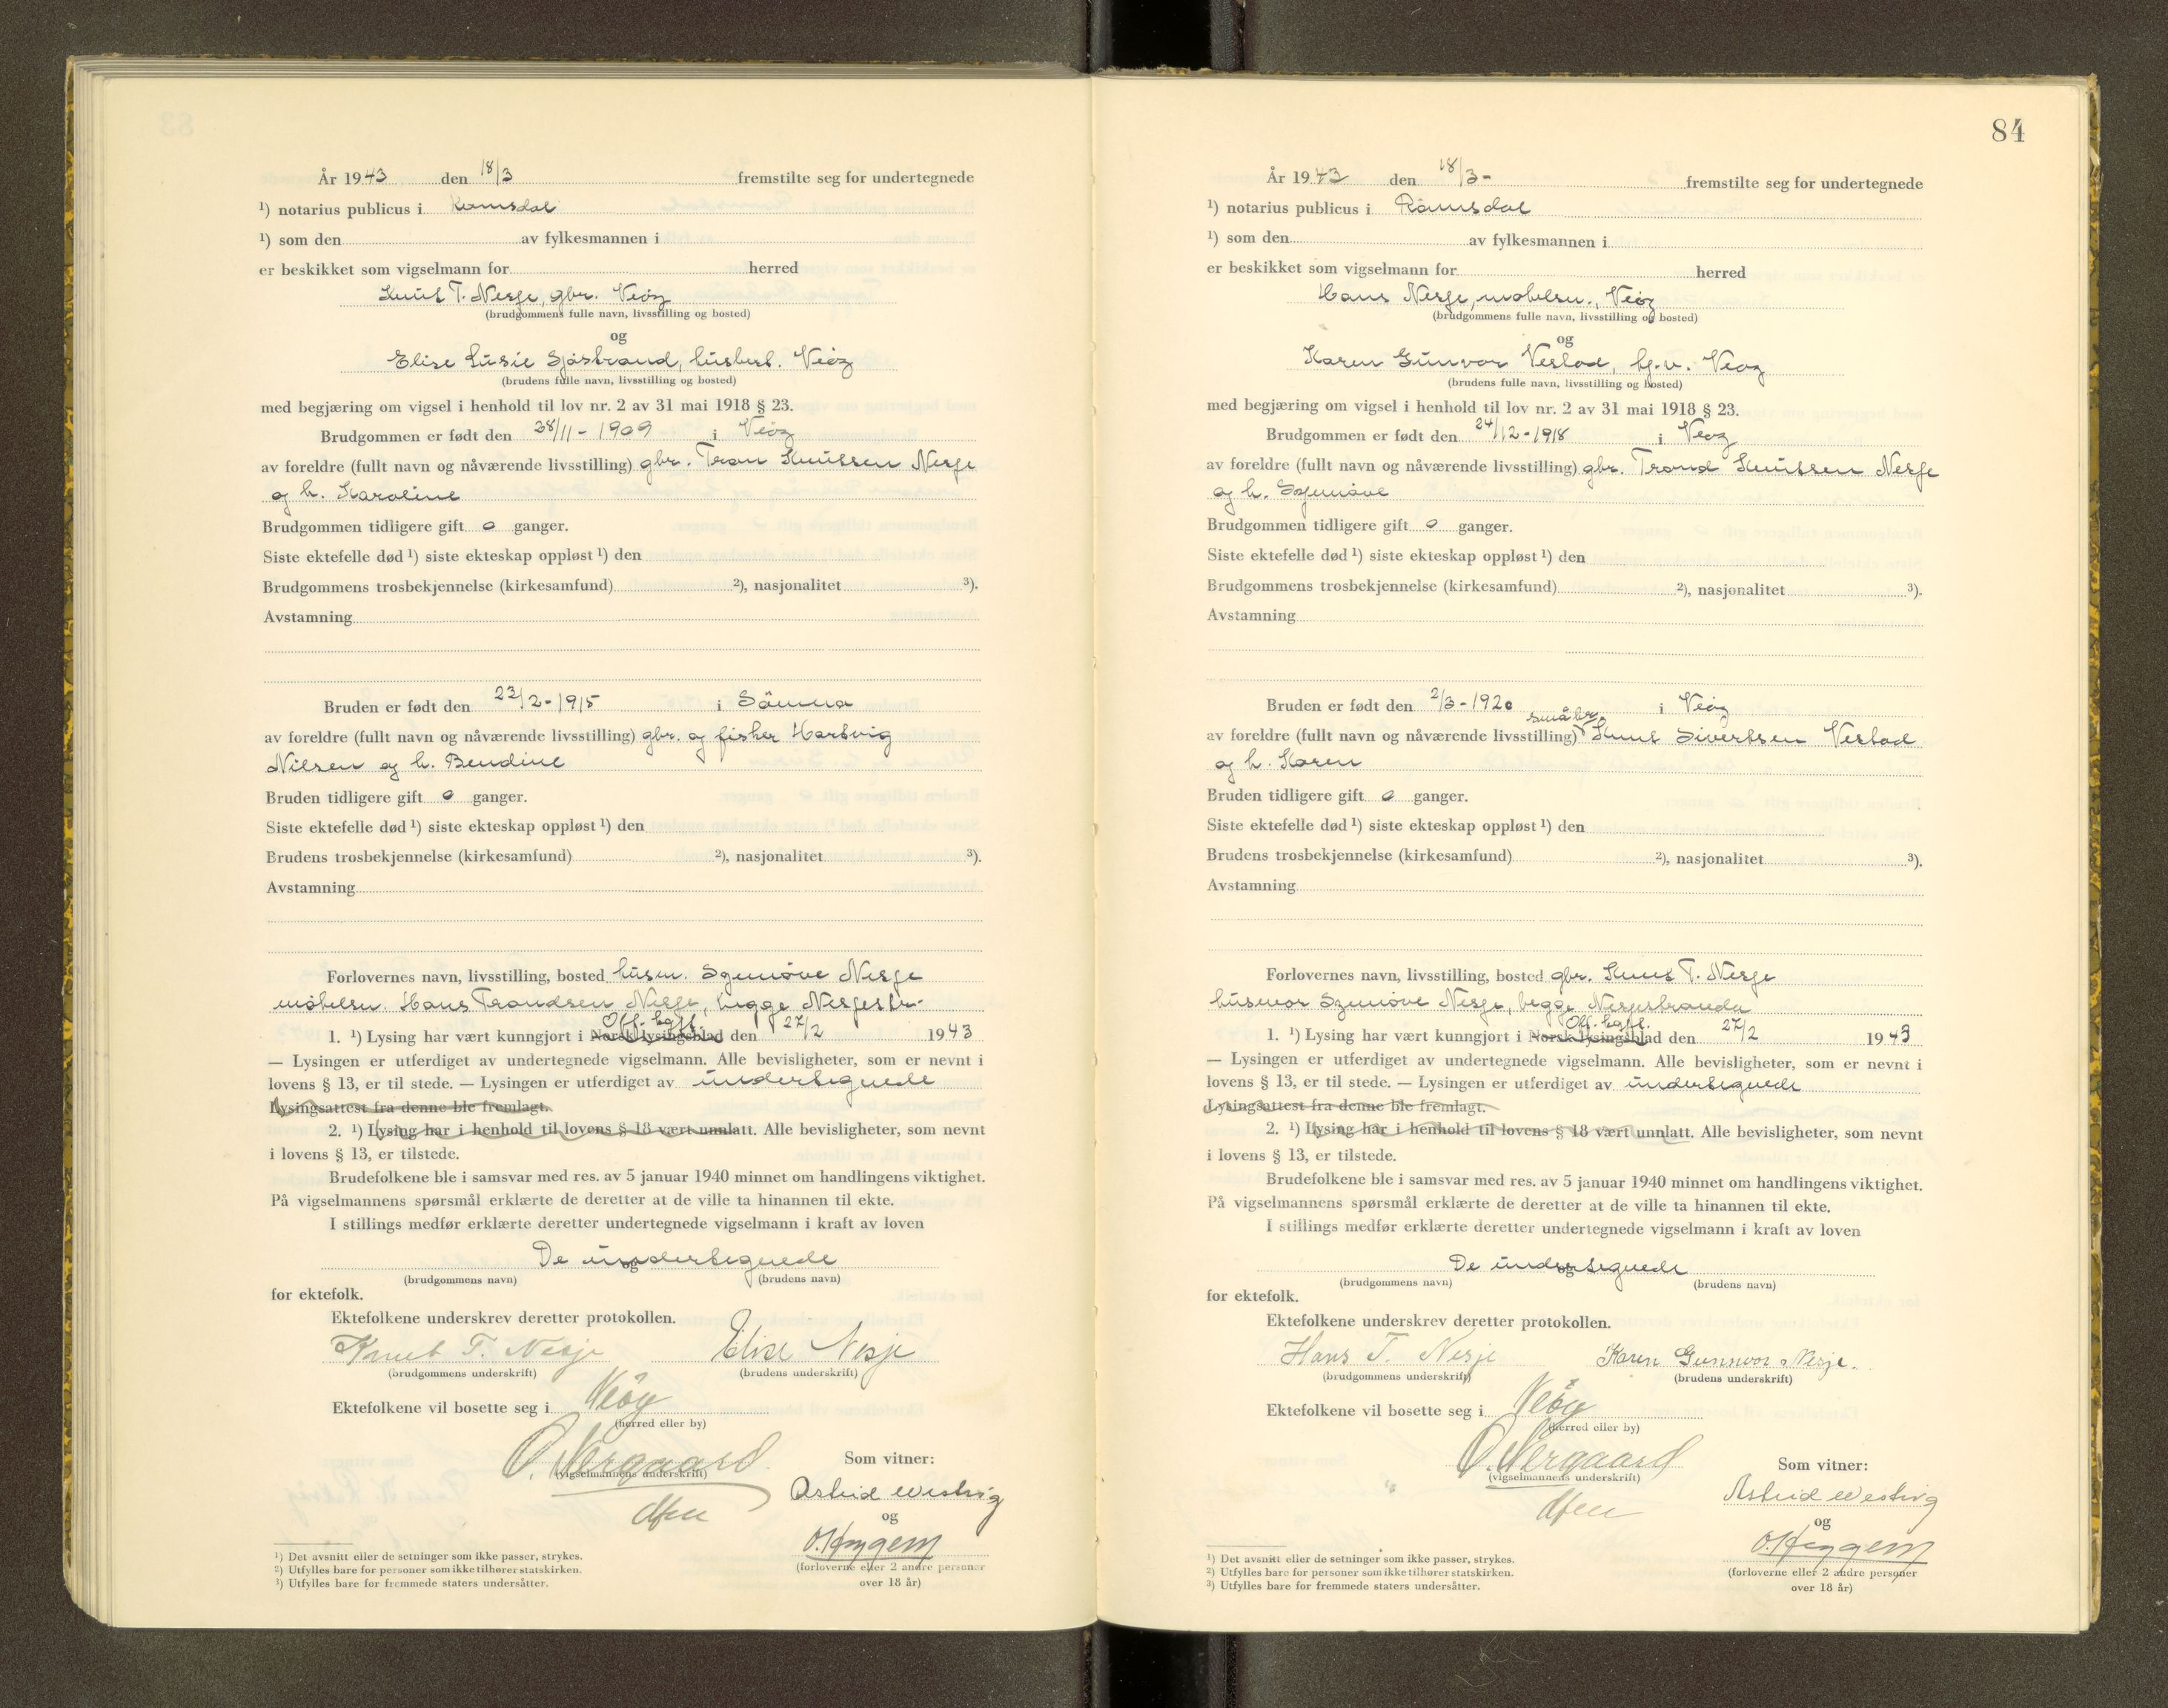 År 1943 den 18/3 fremstilte seg for undertegnede
¹) notarius publicus i Romsdal
¹) som den av fylkesmannen i
er beskikket som vigselmann for herred
Knut T. Nesje, gbr. Veöy
(brudgommens fulle navn, livsstilling og bosted)
og
Elise Lusie Sjåstrand, husbest. Veöy
(brudens fulle navn, livsstilling og bosted)
med begjæring om vigsel i henhold til lov nr. 2 av 31 mai 1918 § 23.
Brudgommen er født den 28/11-1909 i Veöy
av foreldre (fullt navn og nåværende livsstilling) gbr. Tron Knutsen Nesje
og h. Karoline
Brudgommen tidligere gift 0 ganger.
Siste ektefelle død ¹) siste ekteskap oppløst ¹) den
Brudgommens trosbekjennelse (kirkesamfund) ²), nasjonalitet ³).
Avstamning
Bruden er født den 23/2-1915 i Sömna
av foreldre (fullt navn og nåværende livsstilling) gbr. og fisker Hartvig
Nilsen og h. Bendine
Bruden tidligere gift 0 ganger.
Siste ektefelle død ¹) siste ekteskap oppløst ¹) den
Brudens trosbekjennelse (kirkesamfund) ²), nasjonalitet ³).
Avstamning
Forlovernes navn, livsstilling, bosted husm. Synnöve Nesje
möbelsn. Hans Trondsen Nesje, begge Nesjestr.
Off. kgjt.
1. ¹) Lysing har vært kunngjort i Norsk lysingsblad den 27/2 1943
— Lysingen er utferdiget av undertegnede vigselmann. Alle bevisligheter, som er nevnt i
lovens § 13, er til stede. — Lysingen er utferdiget av undertegnede
Lysingsattest fra denne ble fremlagt.
2. ¹) Lysing har i henhold til lovens § 18 vært unnlatt. Alle bevisligheter, som nevnt
i lovens § 13, er tilstede.
Brudefolkene ble i samsvar med res. av 5 januar 1940 minnet om handlingens viktighet.
På vigselmannens spørsmål erklærte de deretter at de ville ta hinannen til ekte.
I stillings medfør erklærte deretter undertegnede vigselmann i kraft av loven
De undertegnede
og
(brudgommens navn) (brudens navn)
for ektefolk.
Ektefolkene underskrev deretter protokollen.
Knut T. Nesje Elise Nesje
(brudgommens underskrift) (brudens underskrift)
Ektefolkene vil bosette seg i Veöy
(herred eller by)
O. Nergaard
(vigselmannens underskrift)
dfm
Som vitner:
Astrid Westvig
og
O. Heggem
(forloverne eller 2 andre personer
over 18 år)
¹) Det avsnitt eller de setninger som ikke passer, strykes.
²) Utfylles bare for personer som ikke tilhører statskirken.
³) Utfylles bare for fremmede staters undersåtter.
84
År 1943 den 18/3- fremstilte seg for undertegnede
¹) notarius publicus i Romsdal
¹) som den av fylkesmannen i
er beskikket som vigselmann for herred
Hans Nesje, möbelsn., Veöy
(brudgommens fulle navn, livsstilling og bosted)
og
Karen Gunvor Vestad, hj.v. Veöy
(brudens fulle navn, livsstilling og bosted)
med begjæring om vigsel i henhold til lov nr. 2 av 31 mai 1918 § 23.
Brudgommen er født den 24/12-1918 i Veöy
av foreldre (fullt navn og nåværende livsstilling) gbr. Trond Knutsen Nesje
og h. Synnöve
Brudgommen tidligere gift 0 ganger.
Siste ektefelle død ¹) siste ekteskap oppløst ¹) den
Brudgommens trosbekjennelse (kirkesamfund) ²), nasjonalitet ³).
Avstamning
Bruden er født den 2/3-1920 i Veöy
småbr.
av foreldre (fullt navn og nåværende livsstilling) Knut Sivertsen Vestad
og h. Karen
Bruden tidligere gift 0 ganger.
Siste ektefelle død ¹) siste ekteskap oppløst ¹) den
Brudens trosbekjennelse (kirkesamfund) ²), nasjonalitet ³).
Avstamning
Forlovernes navn, livsstilling, bosted gbr. Knut T. Nesje
husmor Synnöve Nesje, begge Nesjestranda
Off. kgjt.
1. ¹) Lysing har vært kunngjort i Norsk lysingsblad den 27/2 1943
— Lysingen er utferdiget av undertegnede vigselmann. Alle bevisligheter, som er nevnt i
lovens § 13, er til stede. — Lysingen er utferdiget av undertegnede
Lysingsattest fra denne ble fremlagt.
2. ¹) Lysing har i henhold til lovens § 18 vært unnlatt. Alle bevisligheter, som nevnt
i lovens § 13, er tilstede.
Brudefolkene ble i samsvar med res. av 5 januar 1940 minnet om handlingens viktighet.
På vigselmannens spørsmål erklærte de deretter at de ville ta hinannen til ekte.
I stillings medfør erklærte deretter undertegnede vigselmann i kraft av loven
De undertegnede
og
(brudgommens navn) (brudens navn)
for ektefolk.
Ektefolkene underskrev deretter protokollen.
Hans T. Nesje Karen Gunnvor Nesje.
(brudgommens underskrift) (brudens underskrift)
Ektefolkene vil bosette seg i Veöy
(herred eller by)
O. Nergaard
(vigselmannens underskrift)
dfm
Som vitner:
Astrid Westvig
og
O. Heggem
(forloverne eller 2 andre personer
over 18 år)
¹) Det avsnitt eller de setninger som ikke passer, strykes.
²) Utfylles bare for personer som ikke tilhører statskirken.
³) Utfylles bare for fremmede staters undersåtter.